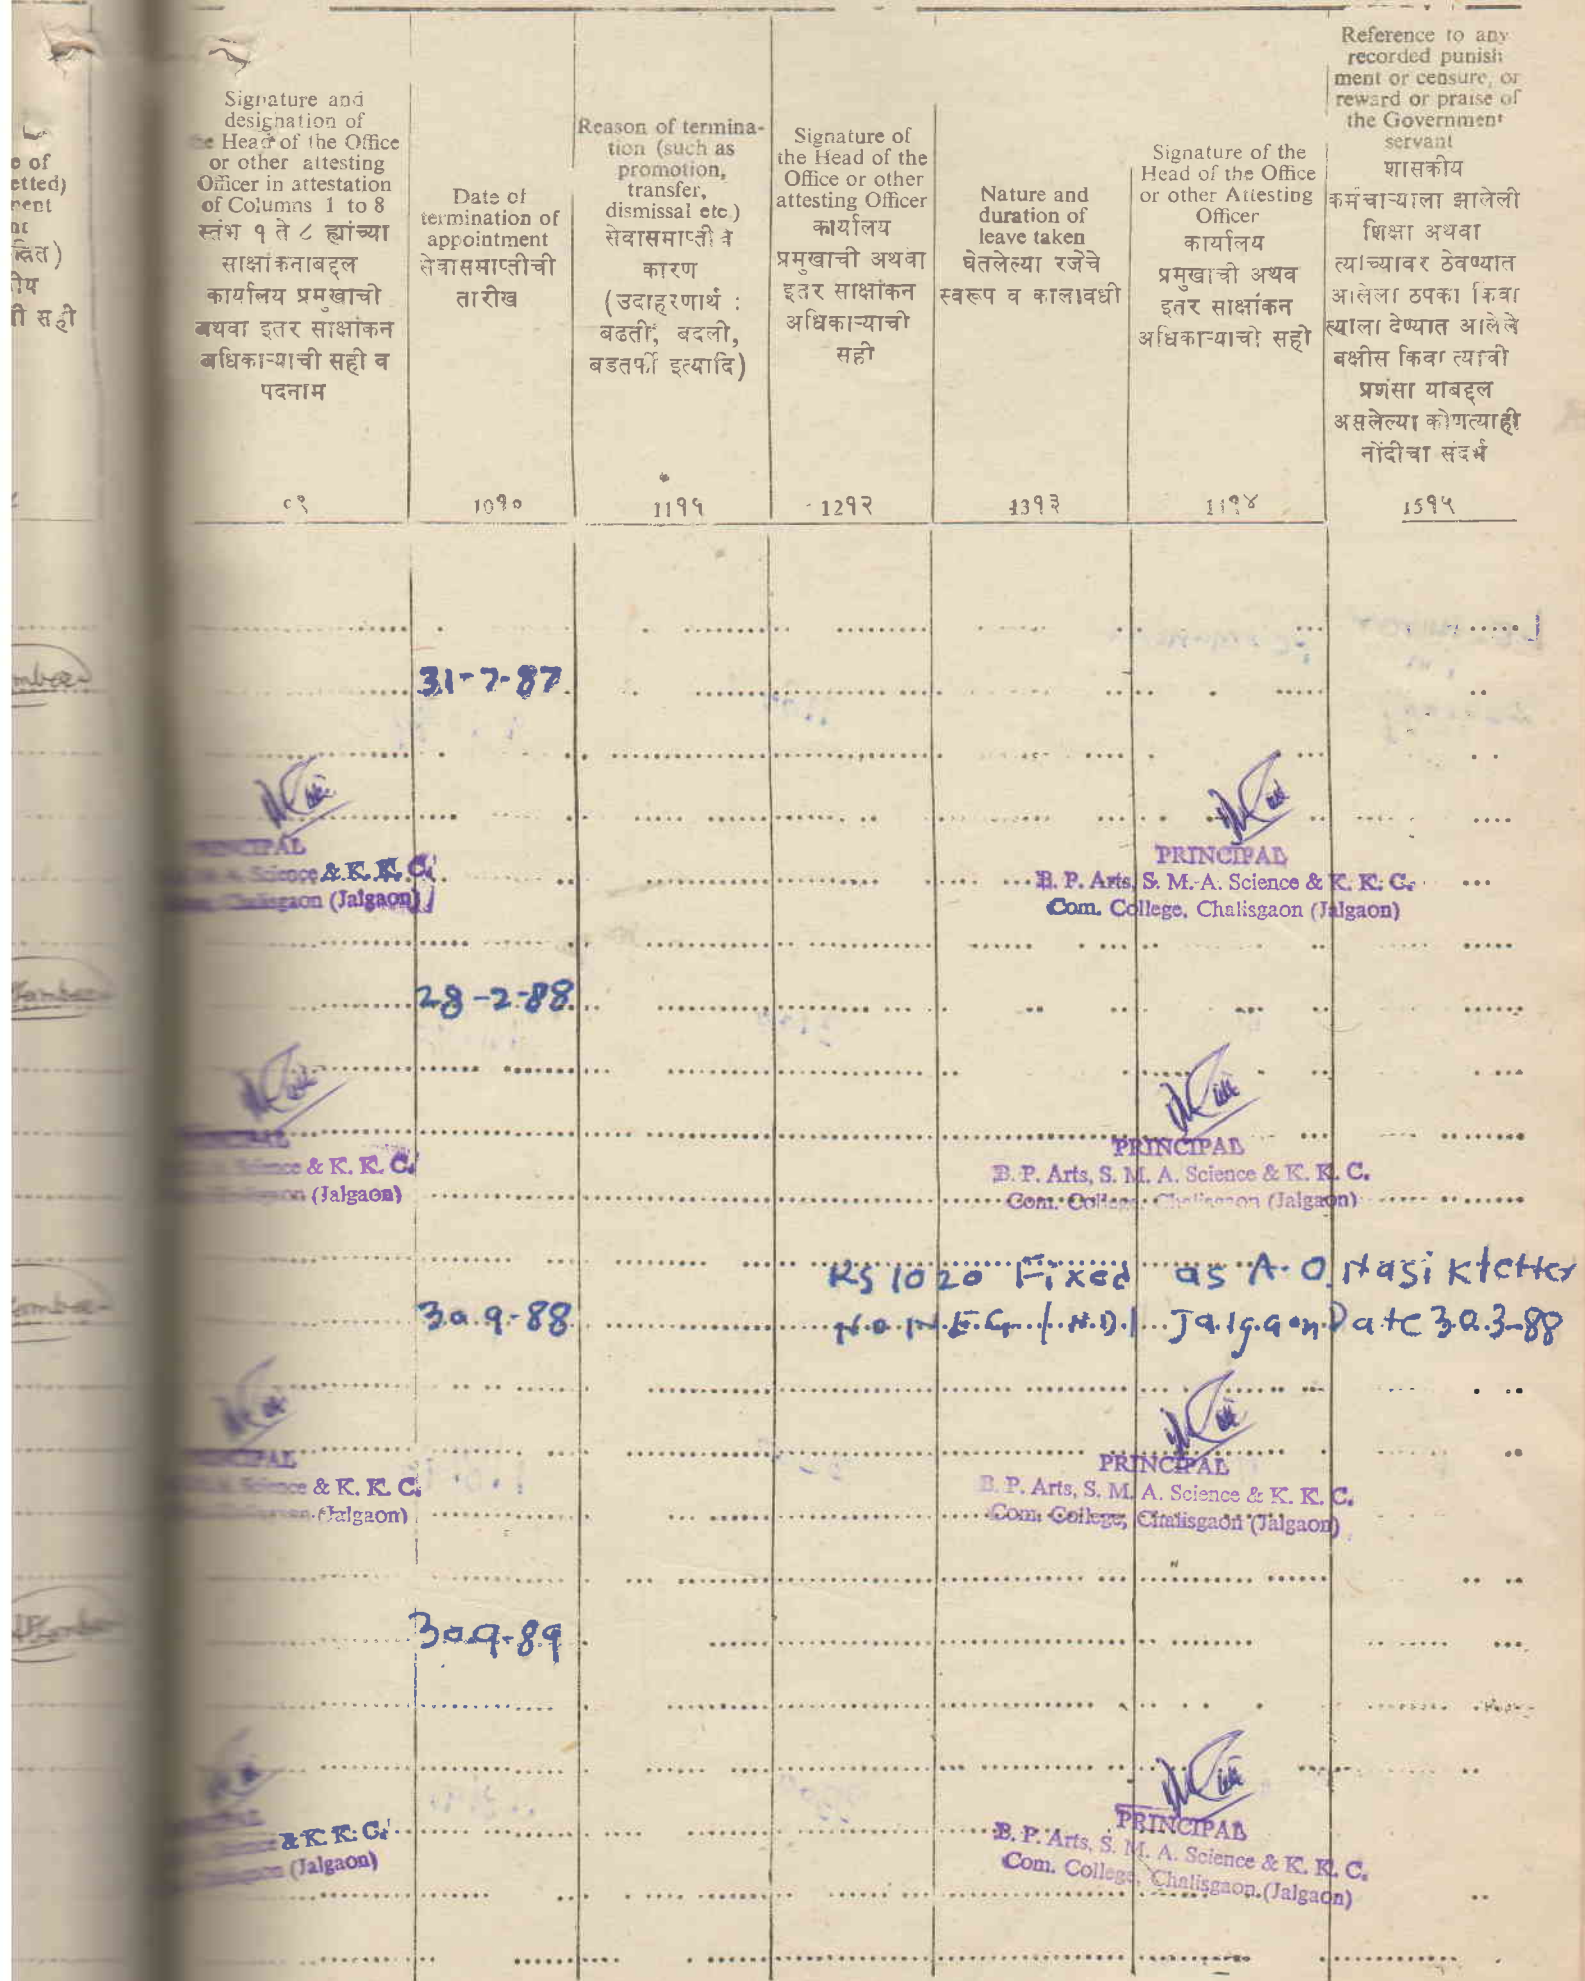 Signature and
designation of
the Head of the Office
or other attesting
Officer in attestation
of Columns 1 to 8
स्तंभ १ ते ८ ह्यांच्या
साक्षांकनाबद्दल
कार्यालय प्रमुखाची
अथवा इतर साक्षांकन
अधिकाऱ्याची सही व
पदनाम
९
Date of
termination of
appointment
सेवासमाप्तीची
तारीख
10१०
Reason of termina-
tion (such as
promotion,
transfer,
dismissal etc.)
सेवासमाप्तीचे
कारण
(उदाहरणार्थ :
बढती, बदली,
बडतर्फी इत्यादि)
11११
Signature of
the Head of the
Office or other
attesting Officer
कार्यालय
प्रमुखाची अथवा
इतर साक्षांकन
अधिकाऱ्याची
सही
12१२
Nature and
duration of
leave taken
घेतलेल्या रजेचे
स्वरूप व कालावधी
13१३
Signature of the
Head of the Office
or other Attesting
Officer
कार्यालय
प्रमुखाची अथव
इतर साक्षांकन
अधिकाऱ्याची सही
14१४
Reference to any
recorded punish
ment or censure, or
reward or praise of
the Government
servant
शासकीय
कर्मचाऱ्याला झालेली
शिक्षा अथवा
त्याच्यावर ठेवण्यात
आलेला ठपका किंवा
त्याला देण्यात आलेले
बक्षीस किंवा त्याची
प्रशंसा याबद्दल
असलेल्या कोणत्याही
नोंदीचा संदर्भ
15१५
e of
etted)
ment
सही
31-7-87
PRINCIPAL
Science & K. K. C.
Chalisgaon (Jalgaon)
PRINCIPAL
B. P. Arts, S. M. A. Science & K. K. C.
Com. College, Chalisgaon (Jalgaon)
28-2-88
PRINCIPAL
Science & K. K. C.
(Jalgaon)
PRINCIPAL
B. P. Arts, S. M. A. Science & K. K. C.
Com. College, Chalisgaon (Jalgaon)
Rs 1020 Fixed as A.O. Nasik letter
30.9-88
Jalgaon Date 30.3-88
PRINCIPAL
Science & K. K. C.
(Jalgaon)
PRINCIPAL
B. P. Arts, S. M. A. Science & K. K. C.
Com. College, Chalisgaon (Jalgaon)
30.9-89
& K. K. C.
(Jalgaon)
PRINCIPAL
B. P. Arts, S. M. A. Science & K. K. C.
Com. College, Chalisgaon (Jalgaon)